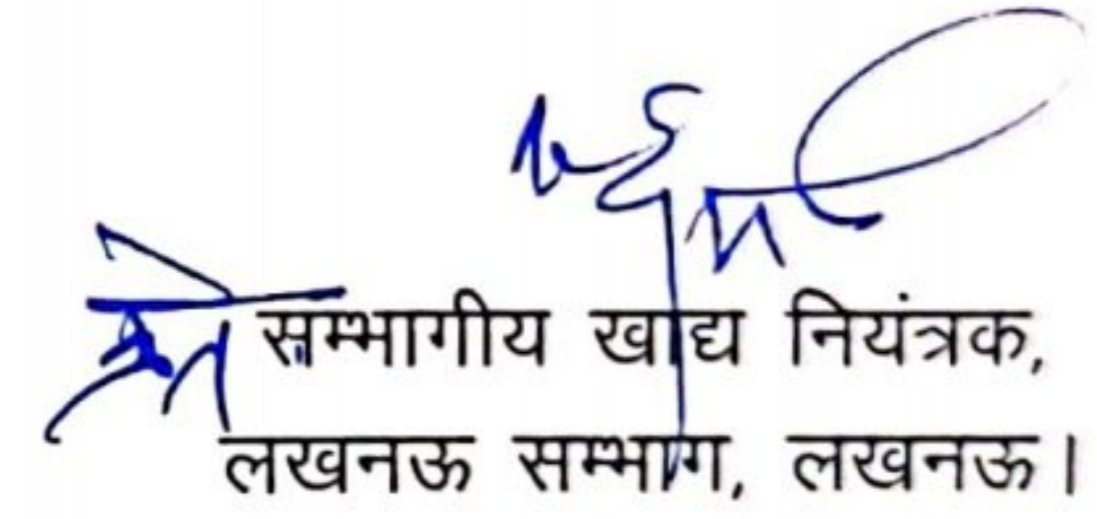 सम्भागीय खाद्य नियंत्रक,
लखनऊ सम्भाग, लखनऊ।